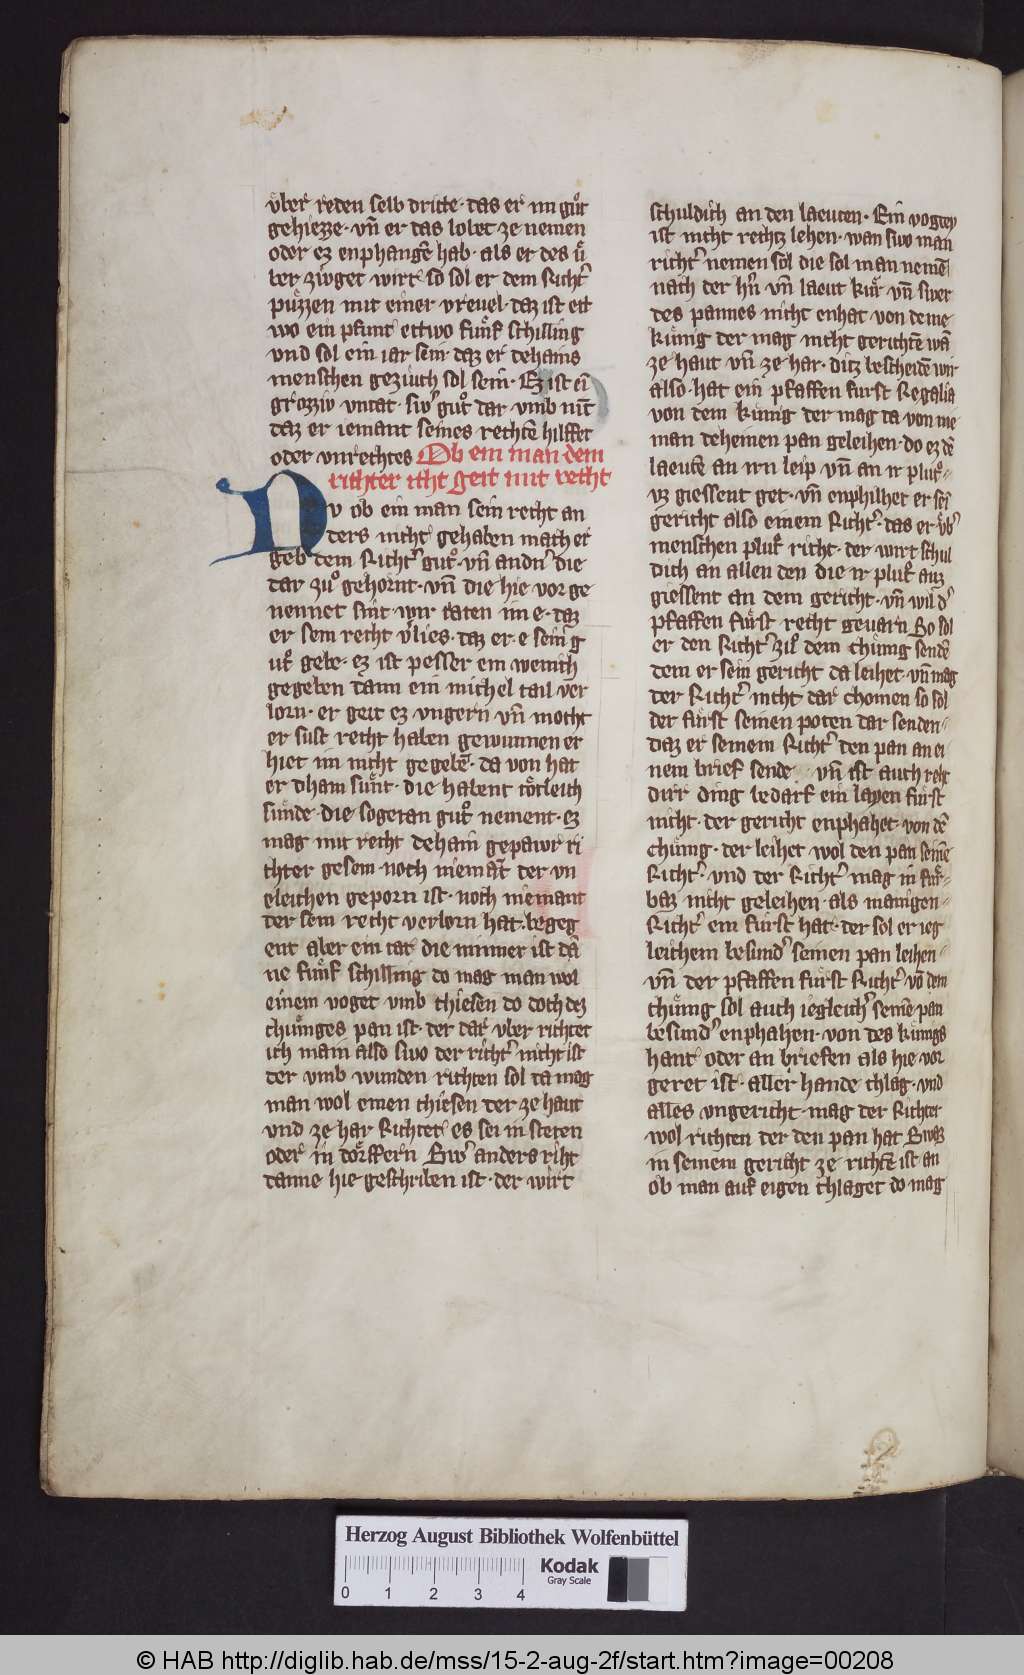 v̈ber reden selb dritte · das er im guͦt
gehiezze · vn̄ er das lobet ze nemen
oder ez enphangē hab · als er des v̈
ber zivget wirt so sol er dem Richt'
puͤzzen mit einer vreuel · daz ist ett
wo ein pfunt ettwo fuͤnf schilling
vnd sol ein iar sein daz er dehains
menschen geziuch sol sein · Ez ist ein
grozziv vntat · sw' guͦt dar vmb nīt
daz er iemant seines rechtē hilffet
oder vnrechtes Ob ein man dem
richter icht geit mit recht
Nv ob ein man sein recht an
ders nicht gehaben mach er
geb dem Richt' guͦt · vn̄ andn' die
dar zuͦ gehornt · vn̄ die hie vor ge
nennet sint wir raten im e · daz
er sein recht v'lies · daz er e sein g
uͦt gebe · ez ist pesser ein wenich
gegeben dann ein michel tail ver
lorn · er geit ez vngern vn̄ mocht
er sust recht haben gewunnen er
hiet im nicht gegebē · da von hat
er dham suͤnt · die habent toͤtleich
suͤnde · die sogeran guͦt nement · ez
mag mit recht dehain gepawr ri
chter gesein · noch niemāt der vn
eleichen geporn ist · noch niemant
der sein recht verlorn hat · begeg
ent aber ein tat die minner ist dā
ne fuͤnf schilling do mag man wol
einem voget vmb chiesen do doch dez
chuͤnges pan ist · der dar vber richtet
ich main also swo der richt' nicht ist
der vmb wunden richten sol da mag
man wol einen chiesen der ze haut
vnd ze har Richtet es sei in steten
oder in doͤrffern Sw' anders riht
danne hie geschriben ist · der wirt
schuldich an den laeuten · Ein vogtey
ist nicht rechtz lehen · wan swo man
richt' nemen sol die sol man nemē
nach der h'n vn̄ laeut kuͤr vn̄ swer
des pannes nicht enhat von deme
kuͤnig der mag nicht gerichtē wā
ze haut vn̄ ze har · ditz bescheidē wir
also · hat ein pfaffen furst Regalia
von dem kuͤnig der mag da von nie
man deheinen pan geleihen · do ez dē
laeutē an irn leip vn̄ an ir pluͦt
vz giessent get · vn̄ enphilhet er sein
gericht also einem Richt' · das er v̈b'
menschen pluͦt richt · der wirt schul
dich an allen den die ir pluͦt auz
giessent an dem gericht · vn̄ wil d'
pfaffen fuͤrst recht geuarn So sol
er den Richt' zuͦ dem chuͤnig sendē
dem er sein gericht da leihet · vn̄ mag
der Richt' nicht dar chomen so sol
der fuͤrst seinen poten dar senden
daz er seinem Richt' den pan an ei
nem brief sende vn̄ ist auch reht
dirr ding bedarf ein layen fuͤrst
nicht · der gericht enphahet · von dē
chuͤnig · der leihet wol den pan seinē
Richt' · vnd der Richt' mag in fuͤr
baz nicht geleihen · als manigen
Richt' ein fuͤrst hat · der sol er ieg
leichem besund' seinen pan leihen
vn̄ der pfaffen fuͤrst Richt' vō dem
chuͤnig sol auch iegleich' seinē pan
besund' enphahen · von des kuͤnigs
hant oder an briefen als hie vor
geret ist · aller hande chlag · vnd
alles vngericht · mag der Richter
wol richten der den pan hat Swaz
in seinem gericht ze richtē ist an
ob man auf eigen chlaget do mag
Herzog August Bibliothek Wolfenbüttel
0 1 2 3 4
Kodak
Gray Scale
© HAB http://diglib.hab.de/mss/15-2-aug-2f/start.htm?image=00208